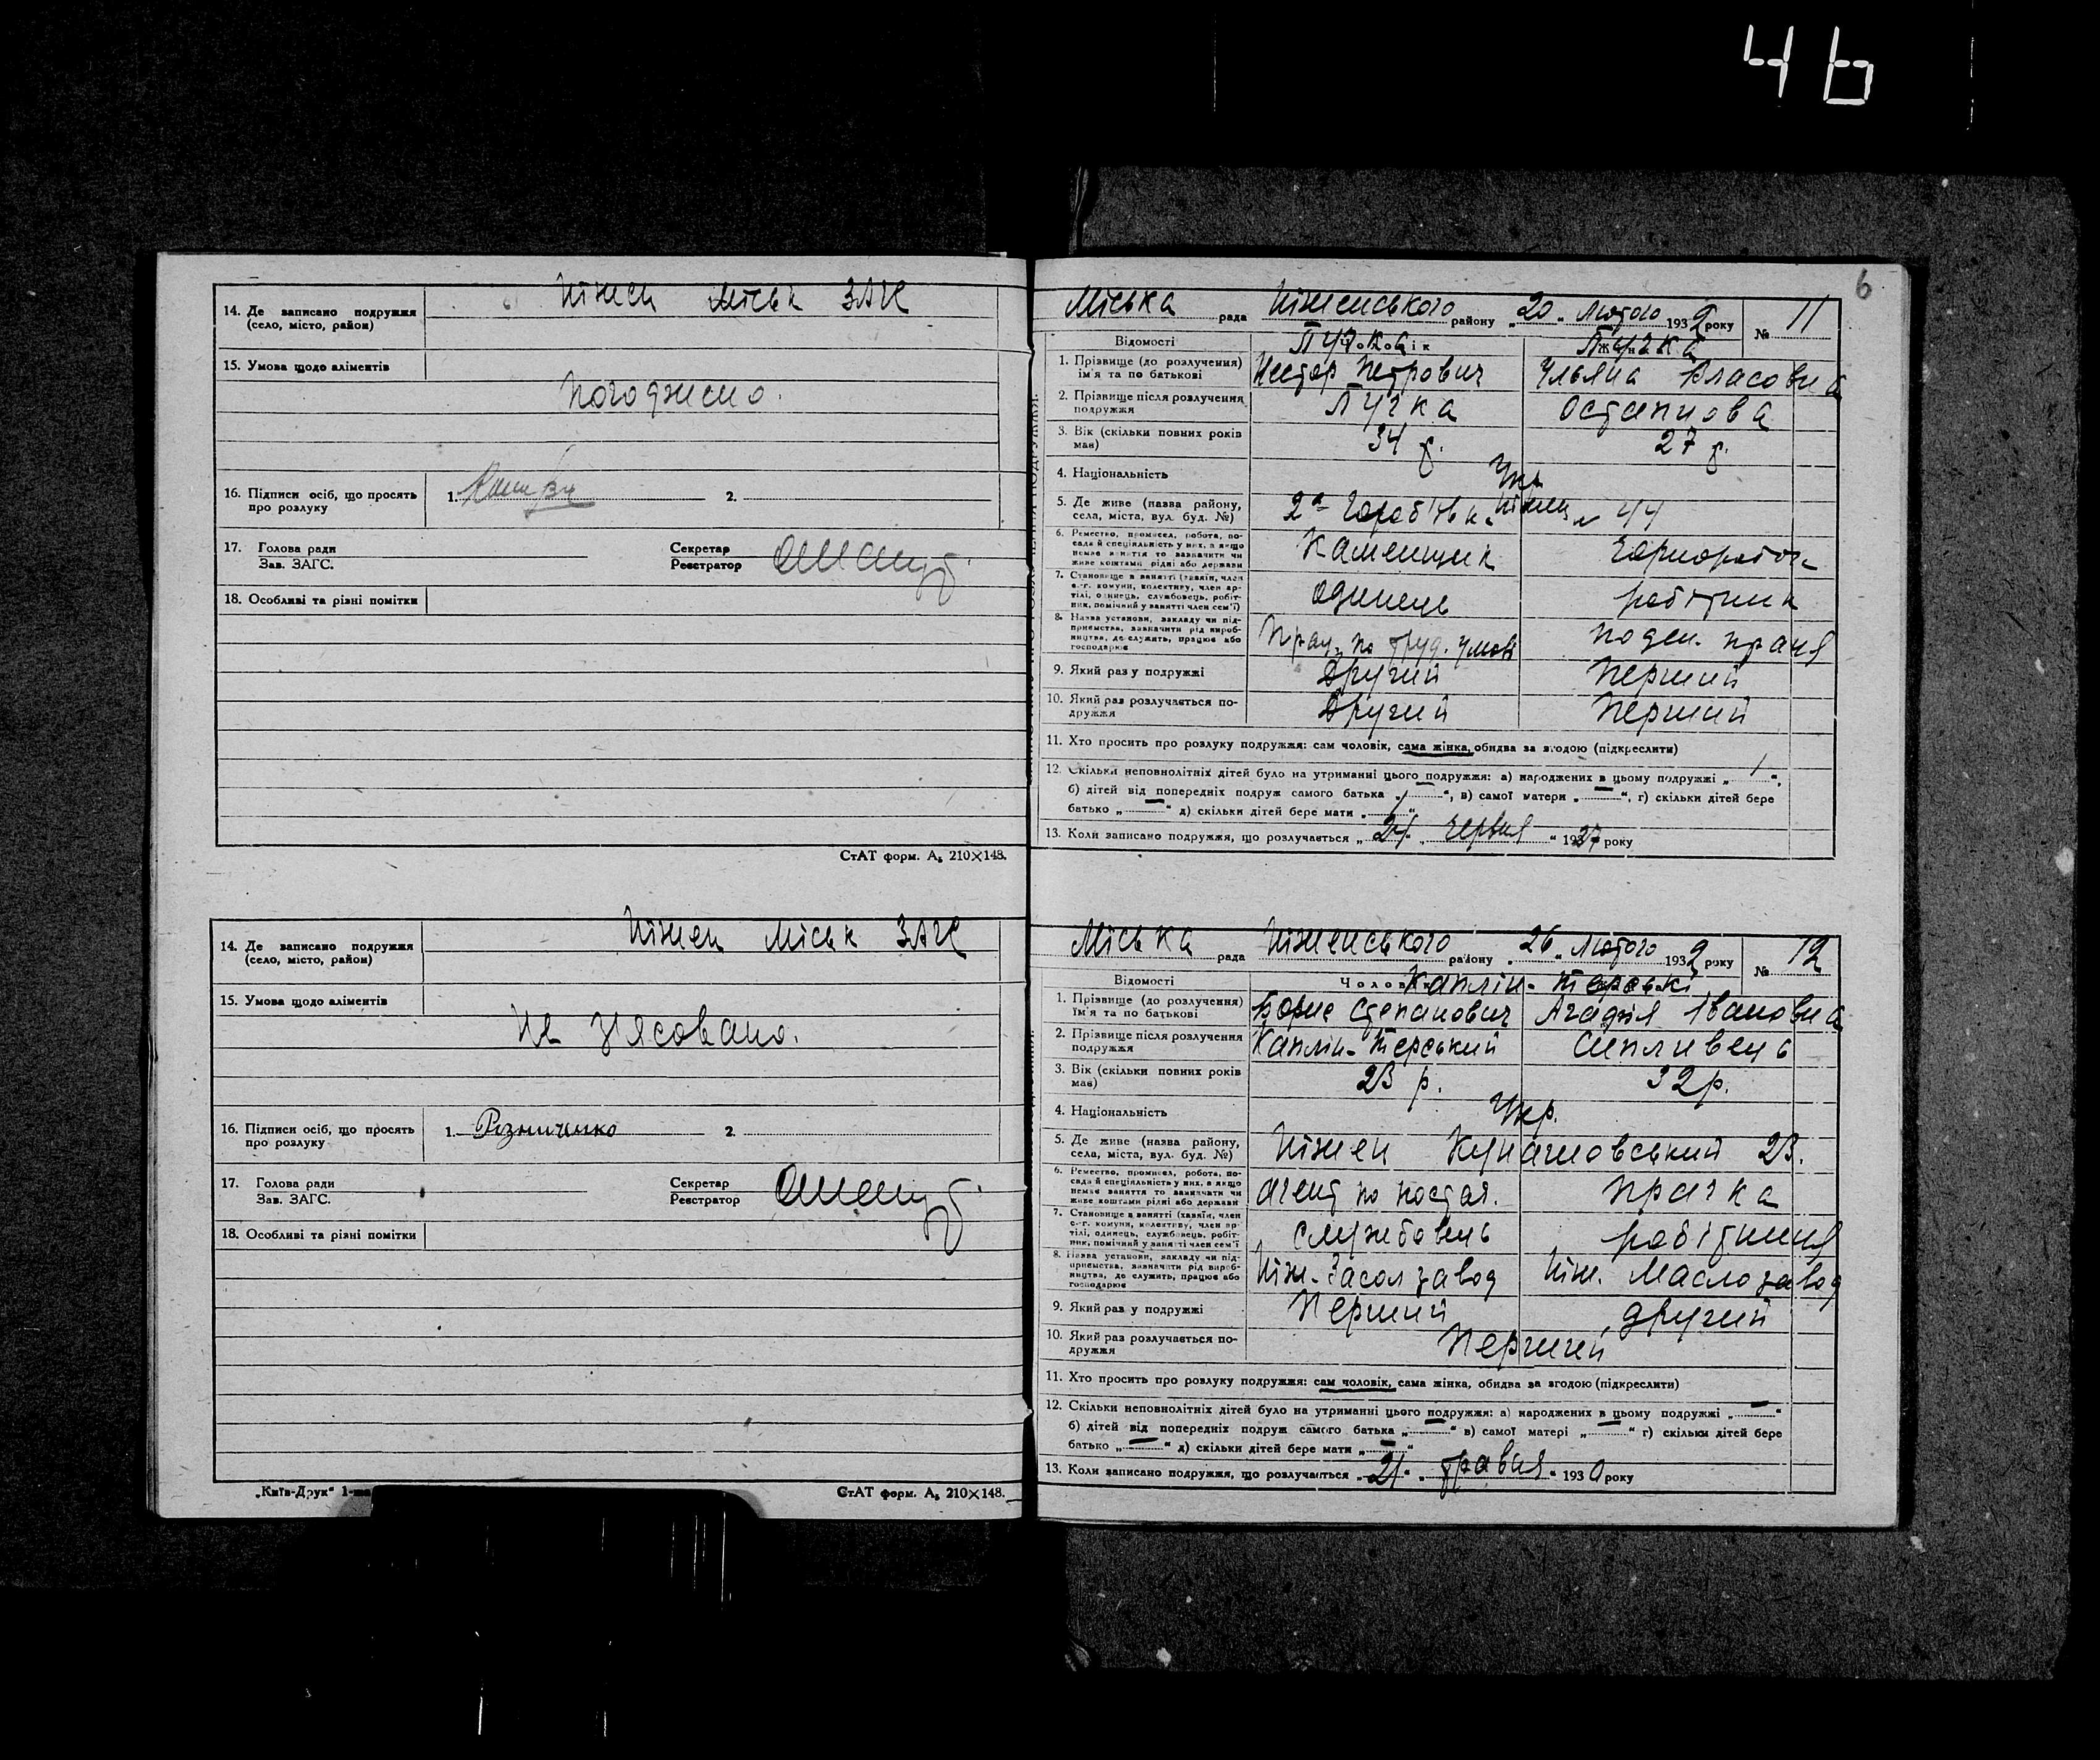 46
14. Де записано подружжя
(село, місто, район)
Ніжен Міськ ЗАГС
15. Умова щодо аліментів
Погоджено.
16. Підписи осіб, що просять
про розлуку
1.
2.
17. Голова ради
Зав. ЗАГС.
Секретар
Реєстратор
18. Особливі та різні помітки
СтАТ форм. А₅ 210×148.
14. Де записано подружжя
(село, місто, район)
Ніжен Міськ ЗАГС
15. Умова щодо аліментів
Не з'ясовано.
16. Підписи осіб, що просять
про розлуку
1. Різниченко
2.
17. Голова ради
Зав. ЗАГС.
Секретар
Реєстратор
18. Особливі та різні помітки
„Київ-Друк“ 1-ша
СтАТ форм. А₅ 210×148.
6
Міська рада Ніженського району „20„ Лютого 1932 року № 11
Відомості Чоловік Жінка
Пучка Пучка
1. Прізвище (до розлучення)
ім'я та по батькові
Нестор Петрович Ульяна Власовна
2. Прізвище після розлучення
подружжя
Пучка Остапнова
3. Вік (скільки повних років
має)
34 р. 27 р.
4. Національність
Укр
5. Де живе (назва району,
села, міста, вул. буд. №)
2а Горобівка Ніжен № 44
6. Ремество, промисел, робота, по-
сада й спеціяльність у них, а якщо
немає заняття то зазначити чи
живе коштами рідні або держави
Каменщик Чорнороботч.
7. Становище в занятті (хазяїн, член
с.-г. комуни, колективу, член ар-
тілі, одинець, службовець, робіт-
ник, помічний у занятті член сем'ї)
одинець робітник
8. Назва установи, закладу чи під-
приємства, зазначити рід вироб-
ництва, де служить, працює або
господарює
Прац. по труд. умові поден. праця
9. Який раз у подружжі
Другий Перший
10. Який раз розлучається по-
дружжя
Другий Перший
11. Хто просить про розлуку подружжя: сам чоловік, сама жінка, обидва за згодою (підкреслити)
12. Скільки неповнолітніх дітей було на утриманні цього подружжя: а) народжених в цьому подружжі „ 1 “,
б) дітей від попередніх подруж самого батька „ 1 “, в) самої матери „ — “, г) скільки дітей бере
батько „ — “ д) скільки дітей бере мати „ 1 “
13. Коли записано подружжя, що розлучається „ 24 „ червня “ 1927 року
Міська рада Ніженського району „26„ Лютого 1932 року № 12
Відомості Чоловік
Каплін-Терські
1. Прізвище (до розлучення)
їм'я та по батькові
Борис Степанович Агафія Івановна
2. Прізвище після розлучення
подружжя
Каплін-Терський Сипливець
3. Вік (скільки повних років
має)
23 р. 32 р.
4. Національність
Укр.
5. Де живе (назва району,
села, міста, вул. буд. №)
Ніжен Кунашовський 23.
6. Ремество, промисел, робота, по-
сада й спеціяльність у них, а якщо
немає заняття то зазначити чи
живе коштами рідні або держави
Агент по постач. прачка
7. Становище в занятті (хазяїн, член
с.-г. комуни, колективу, член ар-
тілі, одинець, службовець, робіт-
ник, помічний у занятті член сем'ї
службовець робітниця
8. Назва установи, закладу чи під-
приємства, зазначити рід вироб-
ництва, де служить, працює або
господарює
Ніж. Засолзавод Ніж. Маслозавод
9. Який раз у подружжі
Перший другий
10. Який раз розлучається по-
дружжя
Перший
11. Хто просить про розлуку подружжя: сам чоловік, сама жінка, обидва за згодою (підкреслити)
12. Скільки неповнолітніх дітей було на утриманні цього подружжя: а) народжених в цьому подружжі „ — “
б) дітей від попередніх подруж самого батька „ — “ в) самої матері „ — “ г) скільки дітей бере
батько „ — “ д) скільки дітей бере мати „ — “
13. Коли записано подружжя, що розлучається „ 21 „ травня “ 1930 року